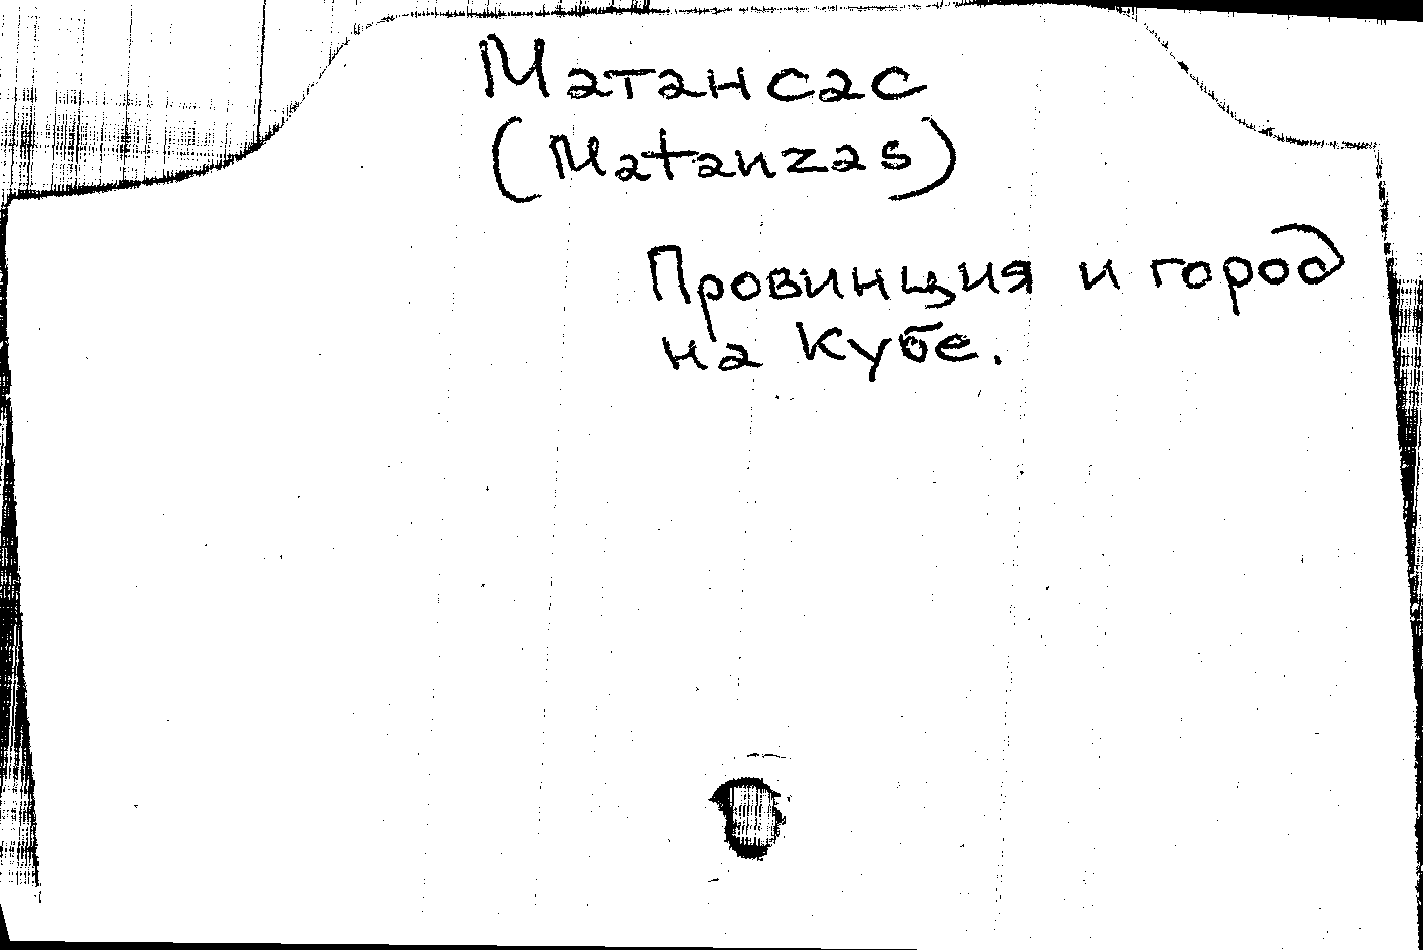 Матансас
(Matanzas)
Провинция и город
на Кубе.